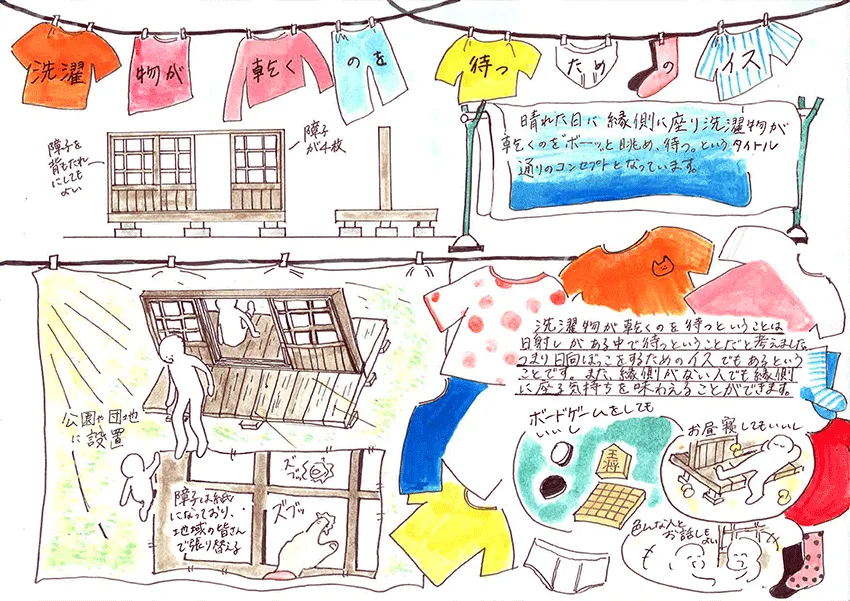 洗濯物が乾くのを待つためのイス
障子を
背もたれ
にしても
よい
障子
が4枚
晴れた日に縁側に座り洗濯物が
乾くのを"ボーッ"と眺め、待つ。というタイトル
通りのコンセプトとなっています。
洗濯物が乾くのを待つということは
日射しがある中で待つということだと考えました。
つまり日向ぼっこをするためのイスでもあるという
ことです。また、縁側がない人でも縁側
に座る気持ちを味わえることができます。
公園や団地
に設置
障子は紙
になっており、
地域の皆さん
で張り替える
ズブッ
ズブッ
ボードゲームをしても
いいし
王将
お昼寝してもいいし
色んな人と
お話しても
よい